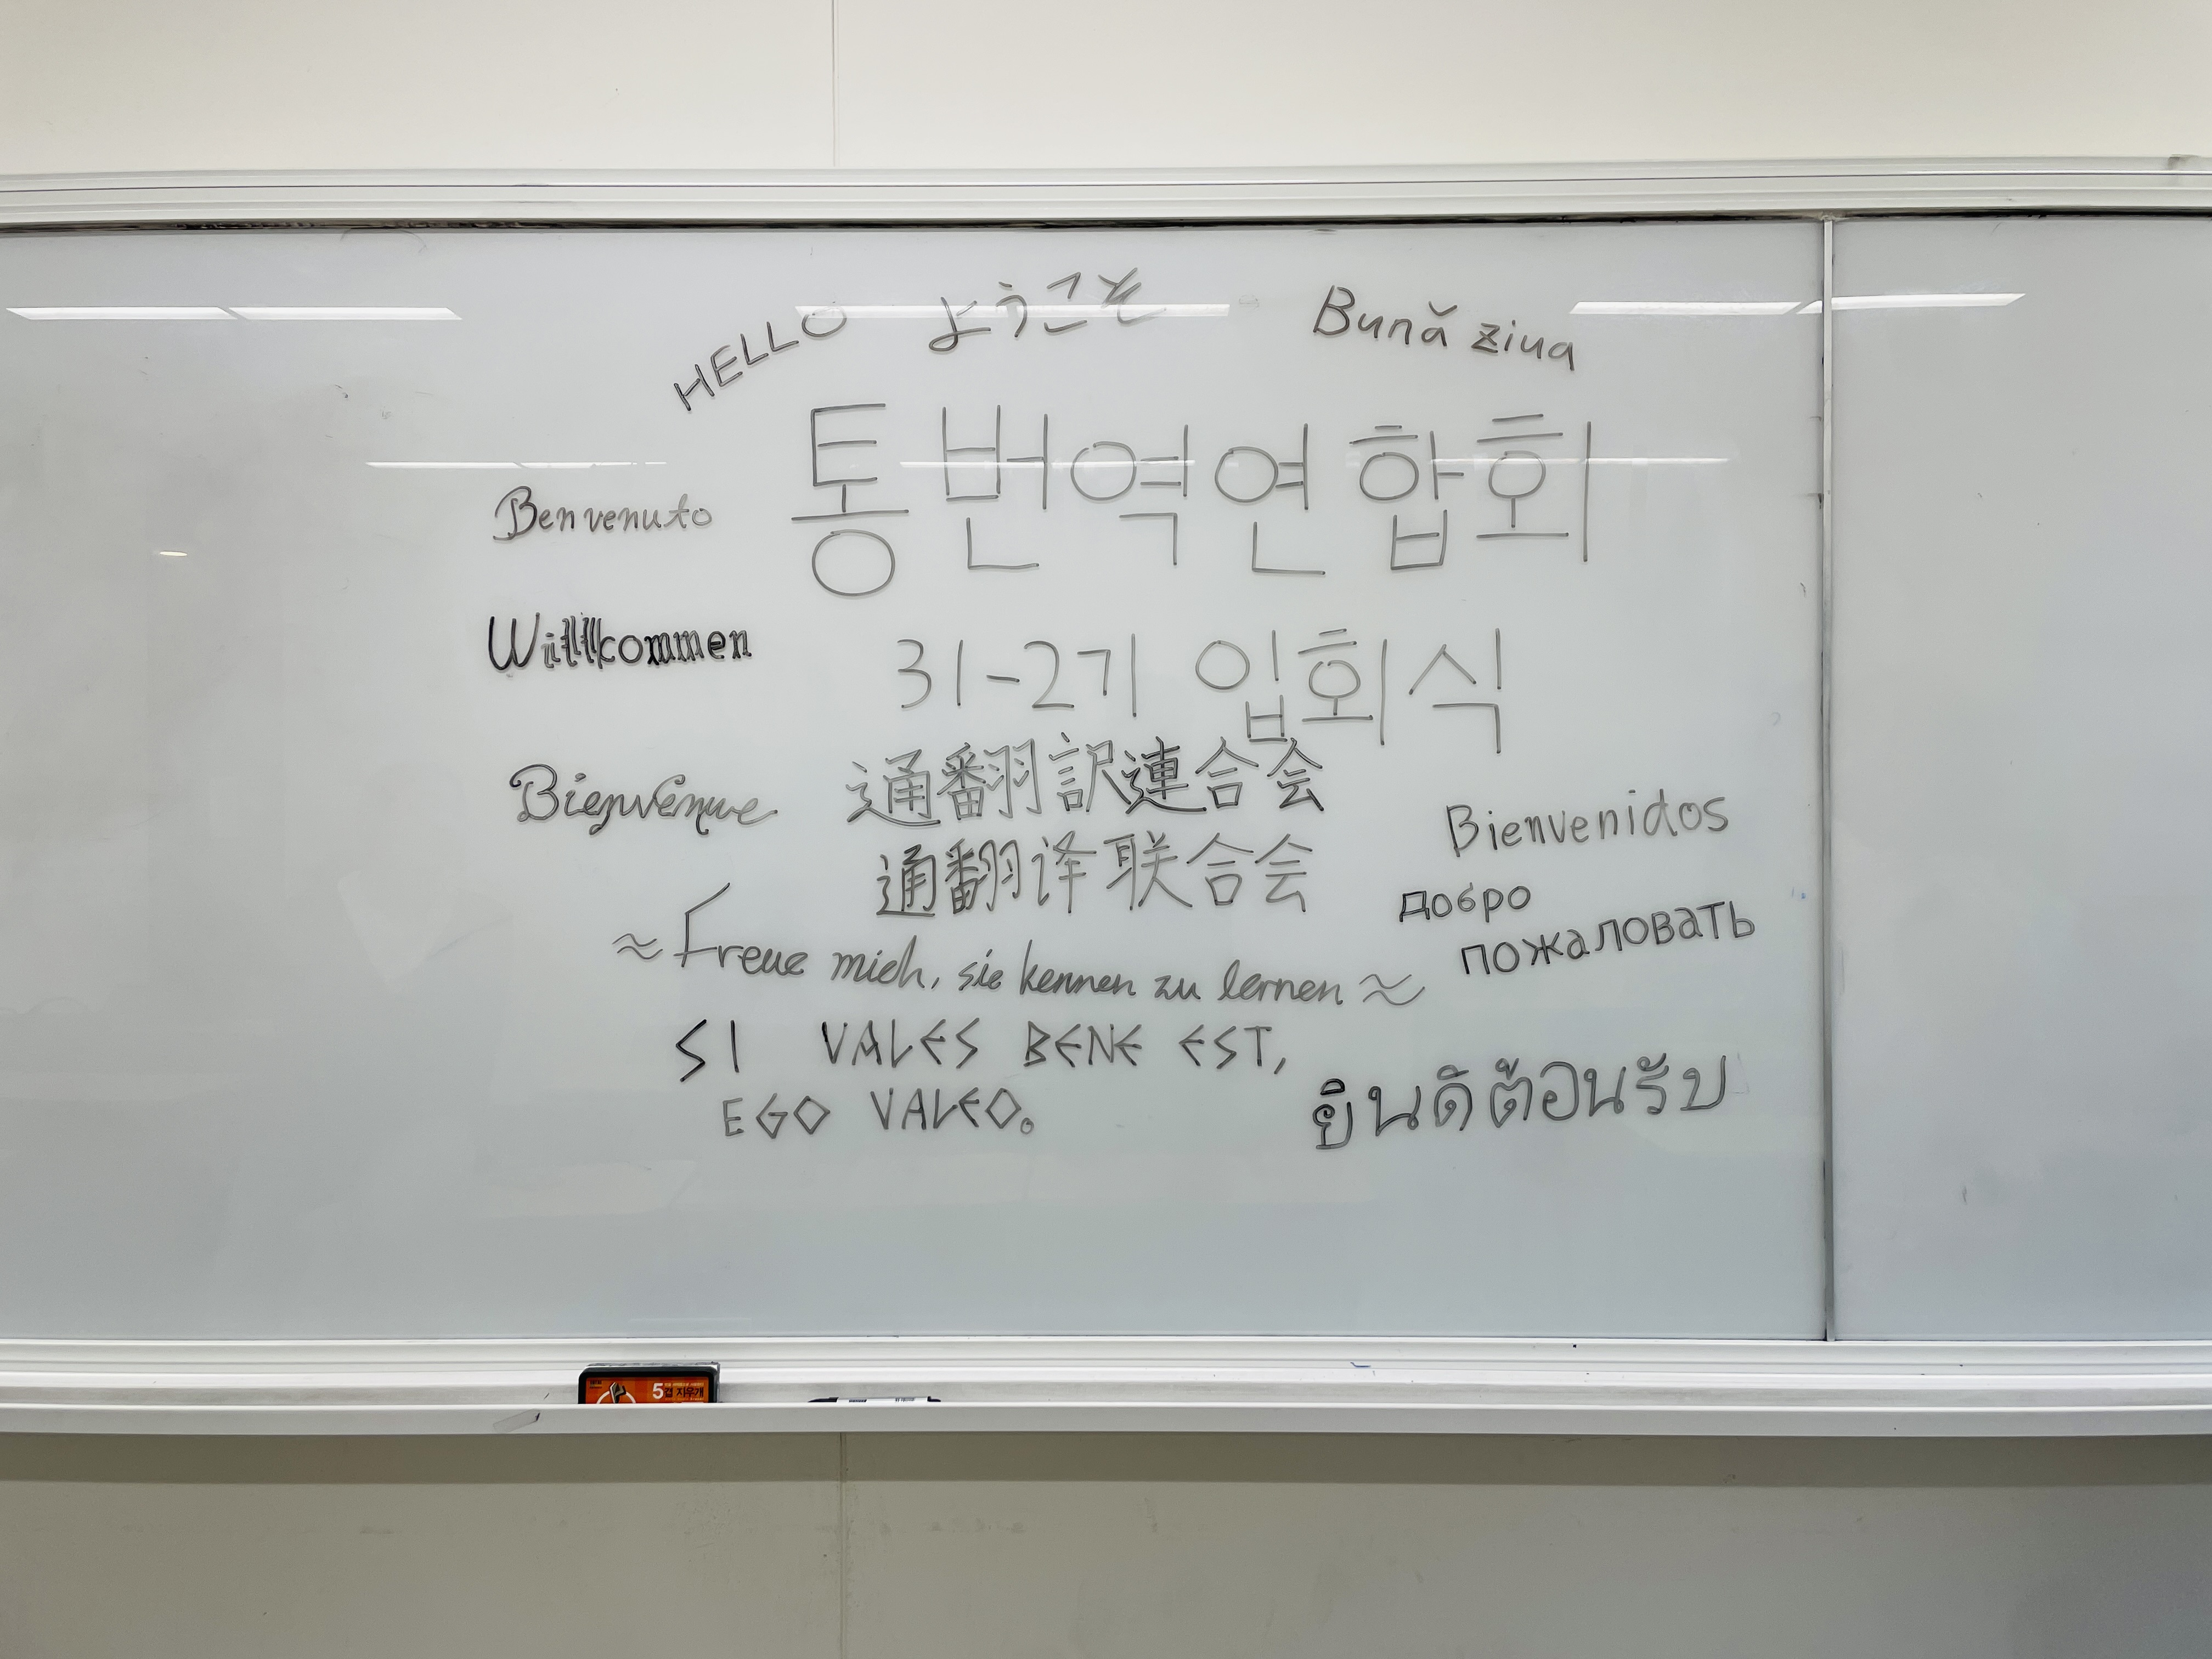 HELLO
ようこそ
Bună ziua
통번역연합회
Benvenuto
Willkommen
31-2기 입회식
通翻訳連合会
Bienvenue
Bienvenidos
通翻译联合会
добро
пожаловать
≈ Freue mich, sie kennen zu lernen ≈
SI VALES BENE EST,
EGO VALEO。
ยินดีต้อนรับ
5겹 지우개